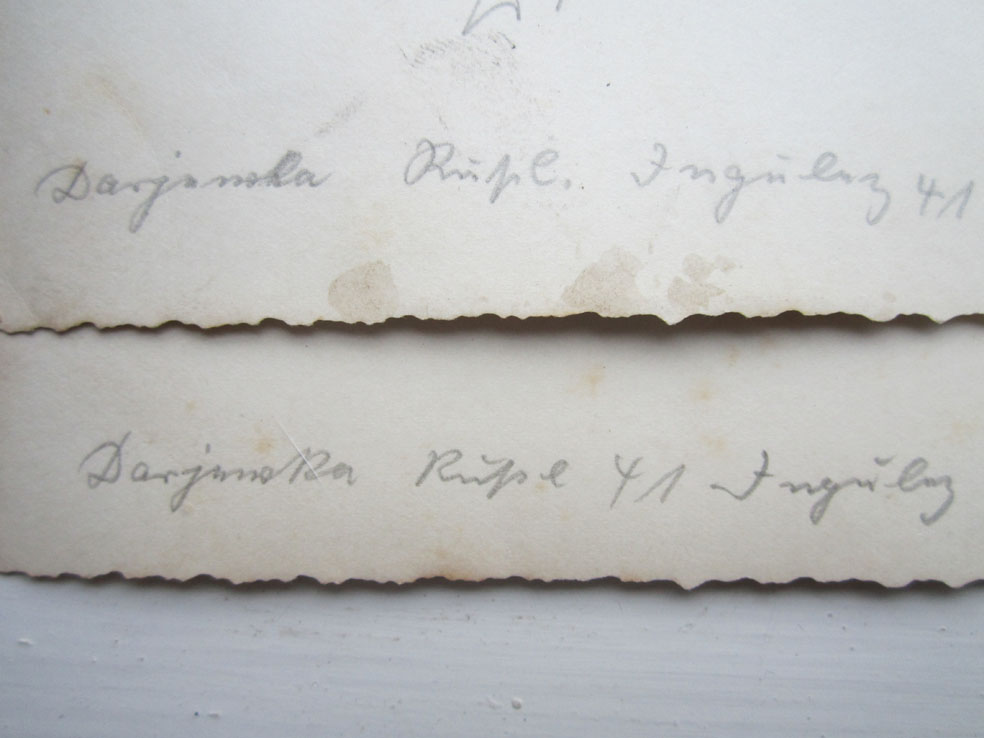 Darjewka Rußl. Ingulez 41
Darjewka Rußl 41 Ingulez